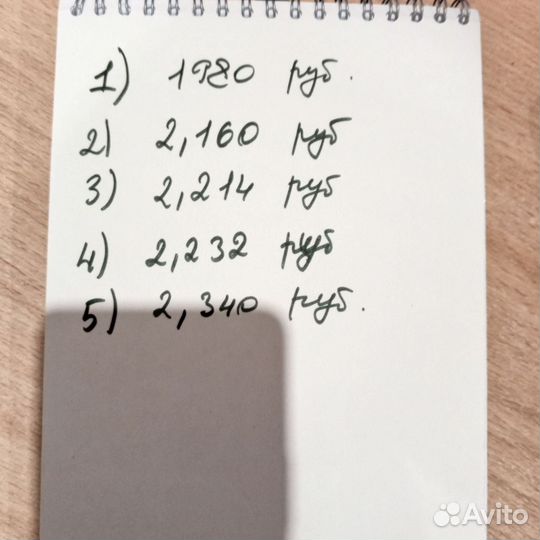 1) 1980 руб.
2) 2,160 руб
3) 2,214 руб
4) 2,232 руб
5) 2,340 руб.
Avito